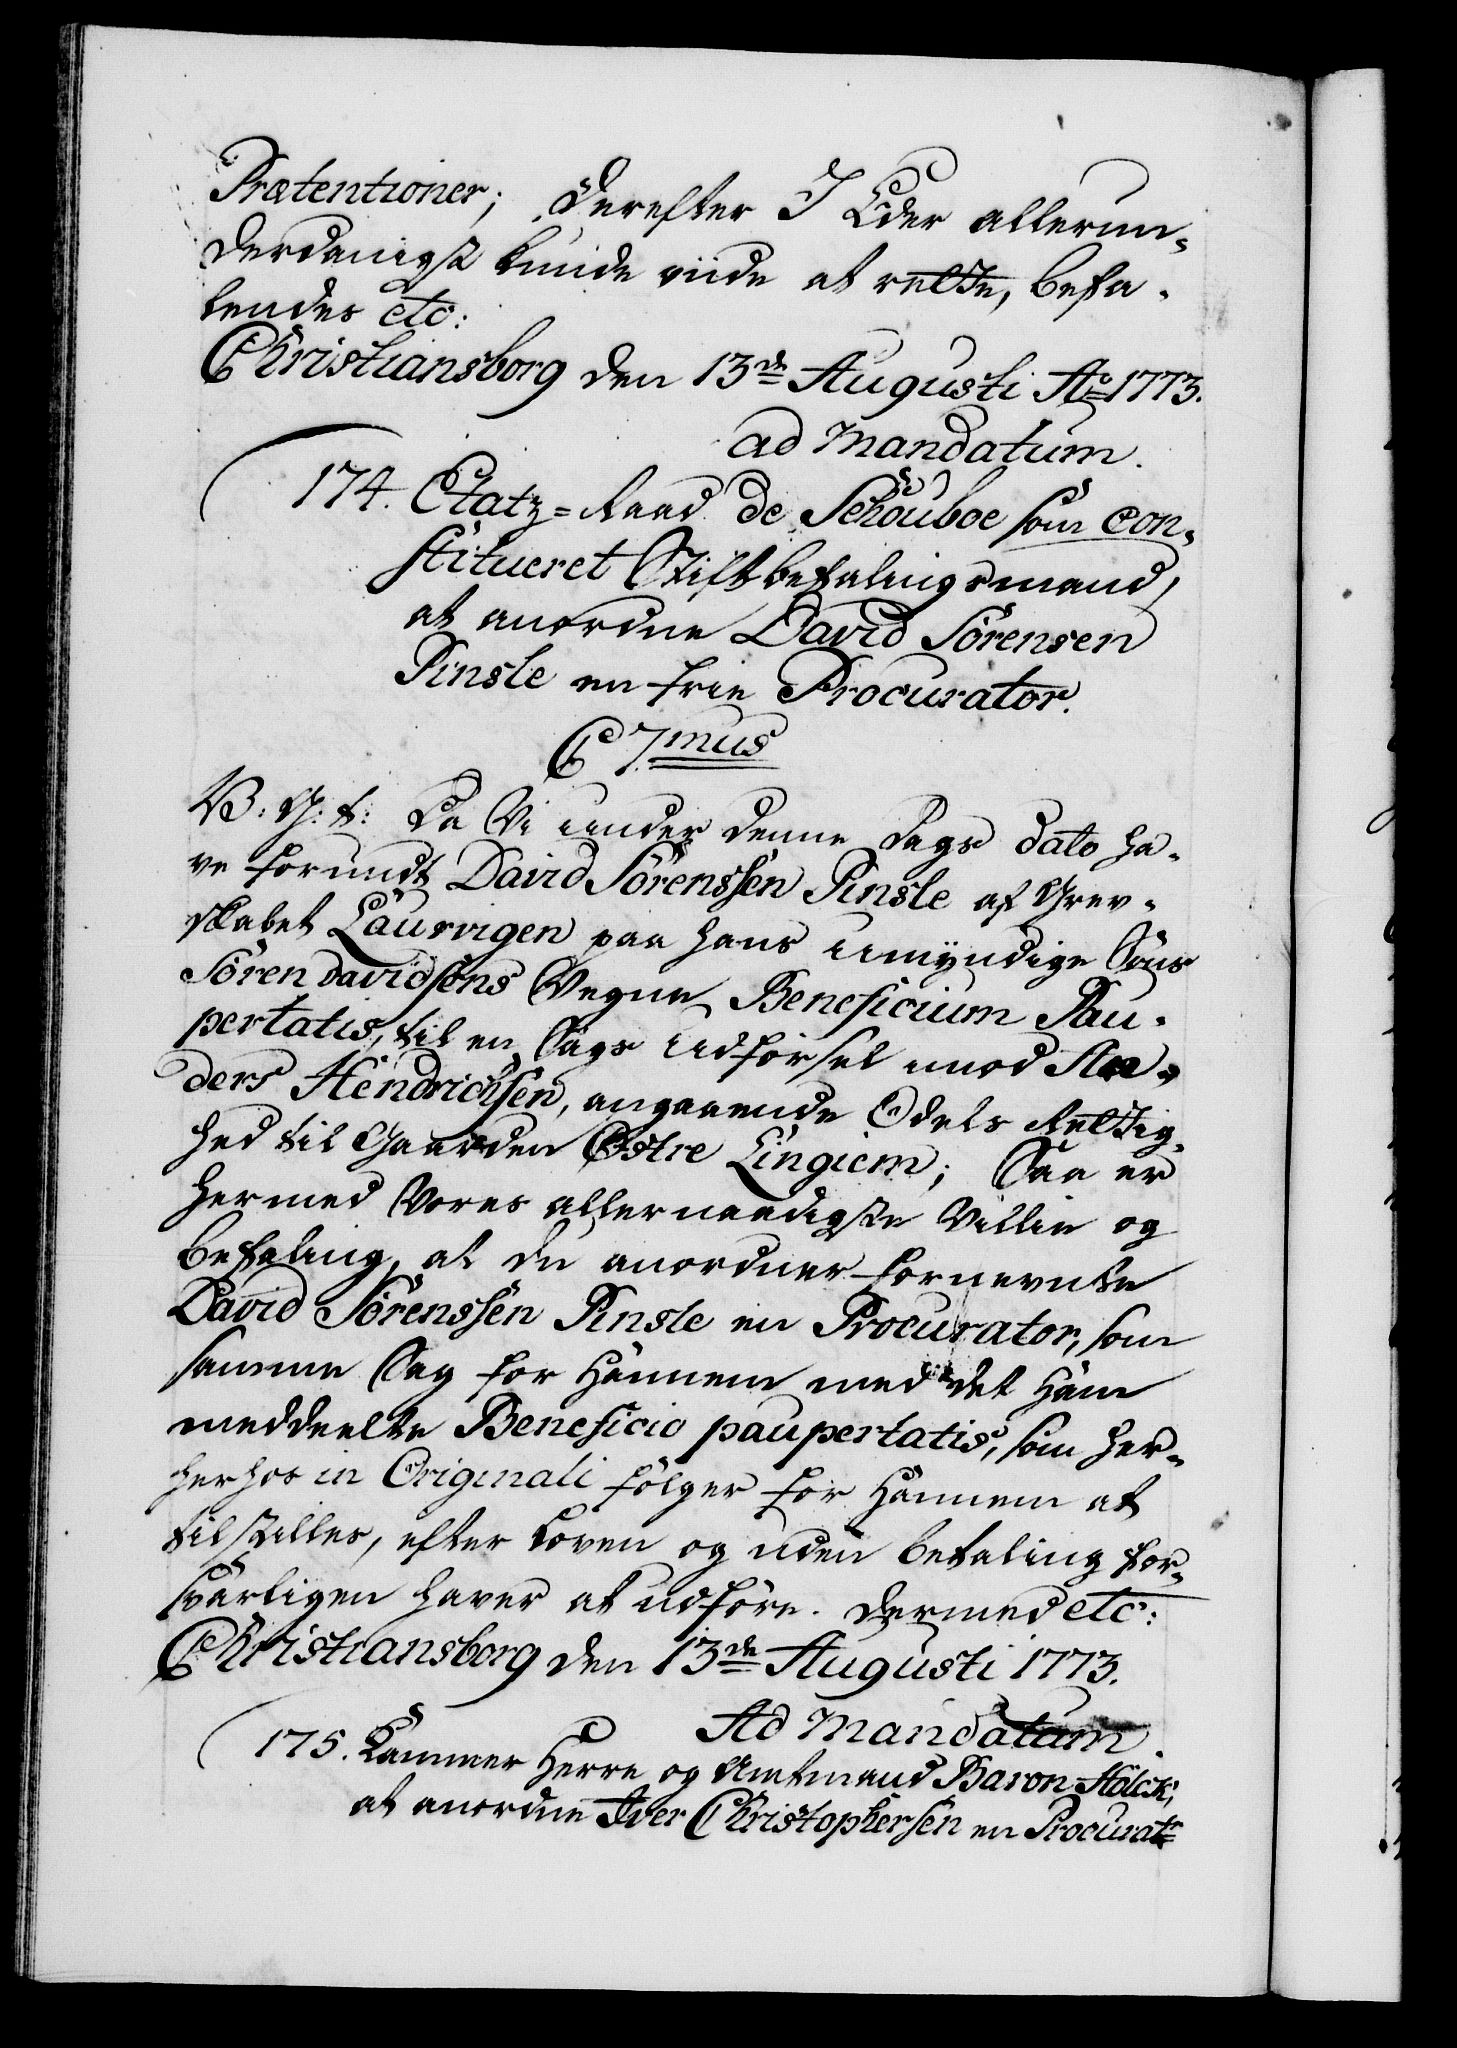 Prætentioner; Derefter I Eder allerun-
derdanigst kunde viide at rette, befa-
lendes etc:
Christiansborg den 13de Augusti Ao 1773.
ad Mandatum.
174. Etatz-Raad de Schouboe som con-
stitueret Stiftbefalingsmand,
at anordne David Sörensen
Pinsle en frie Procurator.
C 7mus
V: G: t: Da Vi under denne Dags dato ha-
ve forundt David Sörenssen Pinsle af Grev-
skabet Laurvigen paa hans umyndige Söns
Sören Davidsöns Vegne Beneficium Pau-
pertatis, til en Sags Udförsel imod An-
ders Hendrichsen, angaaende Odels Rettig-
hed til Gaarden Østre Lingiem; Saa er
hermed Vores allernaadigste Villie og
Befaling, at du anordner fornevnte
David Sörenssen Pinsle en Procurator, som
samme Sag for Hannem med det Ham
meddeelte Beneficio paupertatis, som her-
herhos in Originali fölger for Hannem at
tilstilles, efter Loven og uden betaling for-
svarligen haver at udföre. Dermed etc:
Christiansborg den 13de Augusti 1773.
Ad Mandatum.
175. Kammer Herre og Amtmand Baron Holck,
at anordne Iver Christophersen en Procuratr